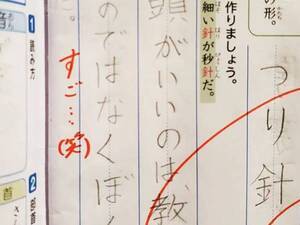 の形。
つり針
作りましょう。
細い針が秒針だ。
頭がいいのは、教
のではなくぼく
すご…(笑)
。
1
読み方
音
2
部首
首